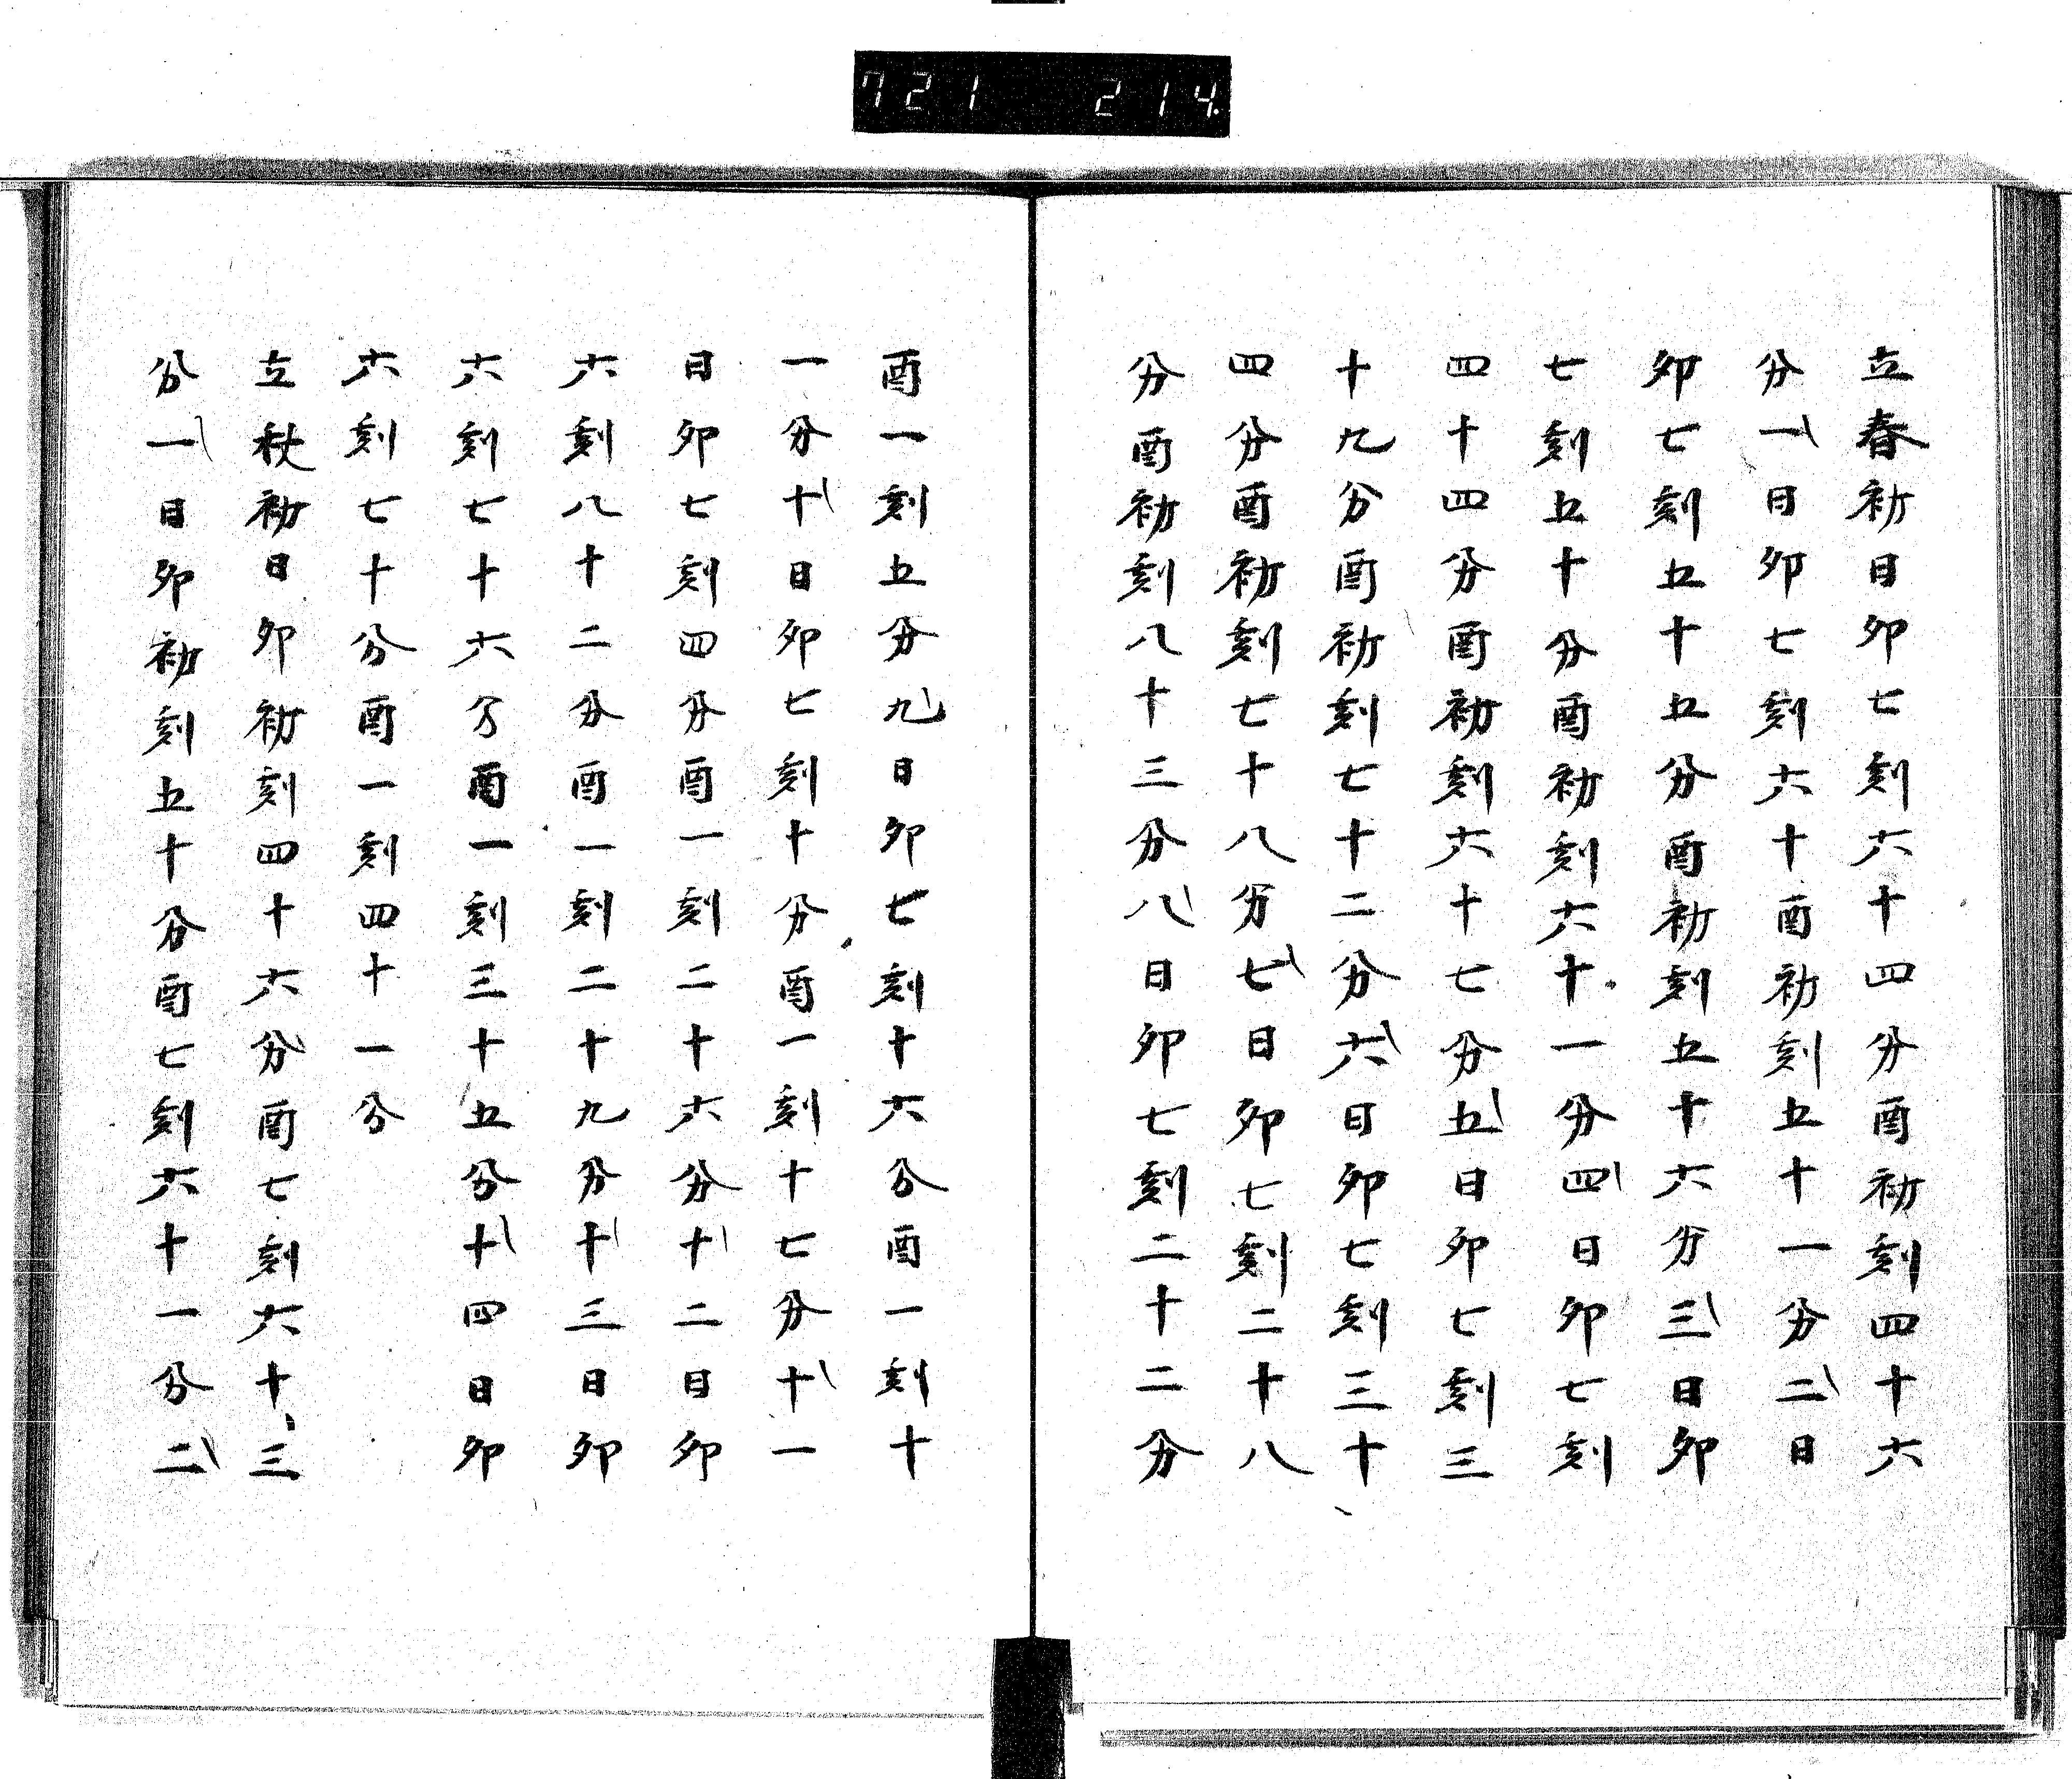 721 214.
立春初日卯七刻六十四分酉初刻四十六
分一日卯七刻六十酉初刻五十一分二日
卯七刻五十五分酉初刻五十六分三日卯
七刻五十分酉初刻六十一分四日卯七刻
四十四分酉初刻六十七分五日卯七刻三
十九分酉初刻七十二分六日卯七刻三十
四分酉初刻七十八分七日卯七刻二十八
分酉初刻八十三分八日卯七刻二十二分
酉一刻五分九日卯七刻十六分酉一刻十
一分十日卯七刻十分酉一刻十七分十一
日卯七刻四分酉一刻二十六分十二日卯
六刻八十二分酉一刻二十九分十三日卯
六刻七十六分酉一刻三十五分十四日卯
六刻七十分酉一刻四十一分
立秋初日卯初刻四十六分酉七刻六十三
分一日卯初刻五十分酉七刻六十一分二